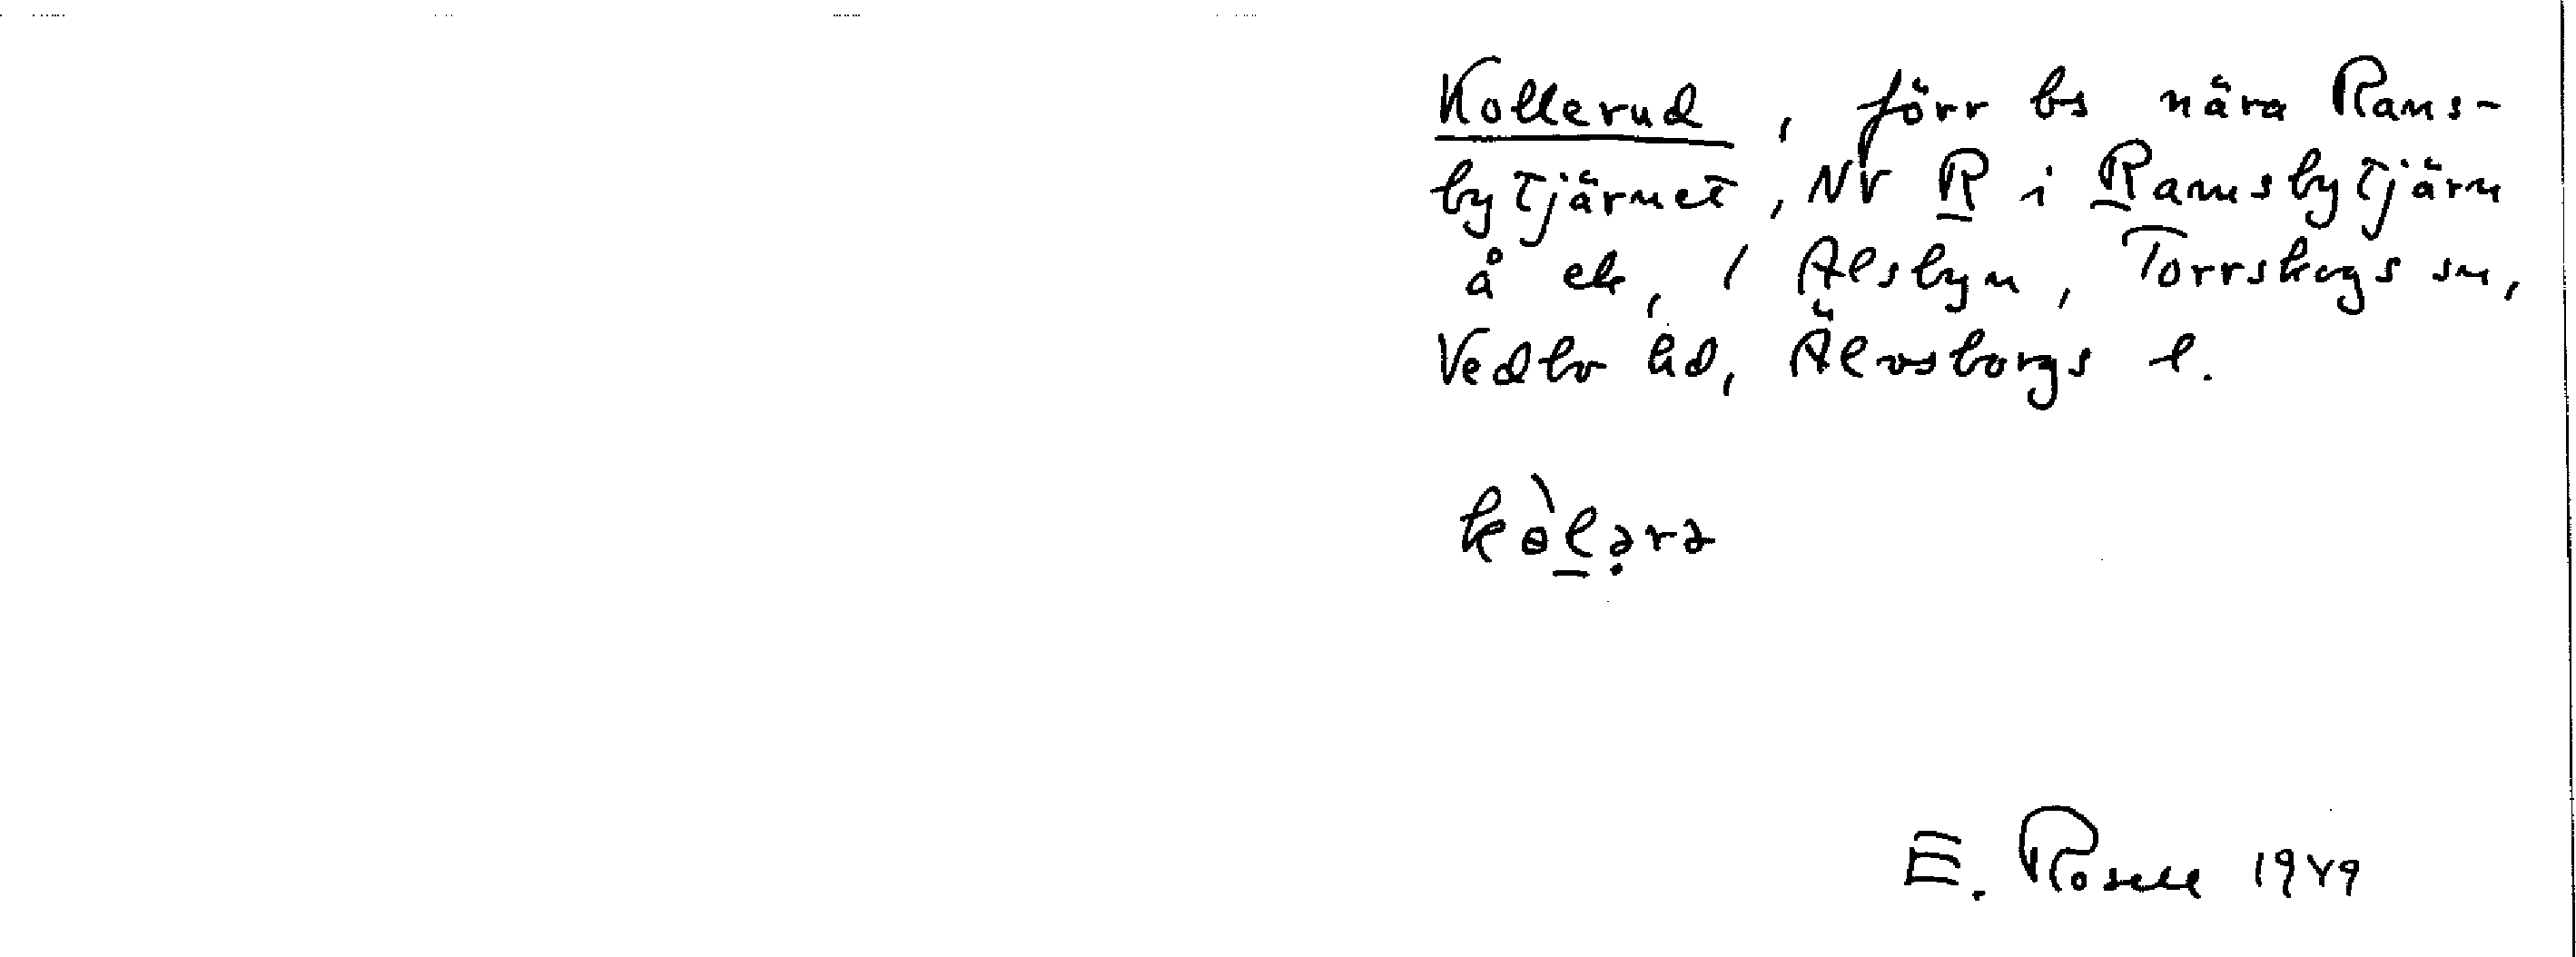 Kollerud, förr bs nära Rams-
bytjärnet, NV R i Ramsbytjärn
å ek, / Alsbyn, Torrskogs sn,
Vedbo hd, Älvsborgs l.
kò̵l̲ə̣rə
E. Rosell 1949